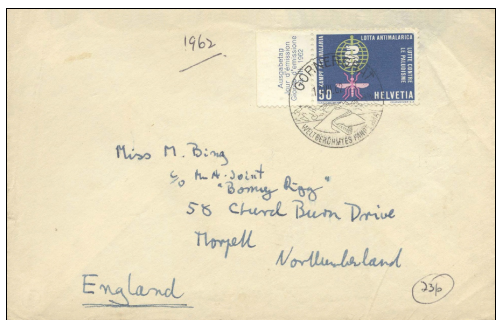 1962
Ausgabetag
Jour d'émission
Giorno d'emissione
1962
KAMPF DER MALARIA
LOTTA ANTIMALARICA
LUTTE CONTRE
LE PALUDISME
50
HELVETIA
WELTBERÜHMTES
Miss M. Bing
c/o
58 Church Burn Drive
Morpeth
Northumberland
England
236